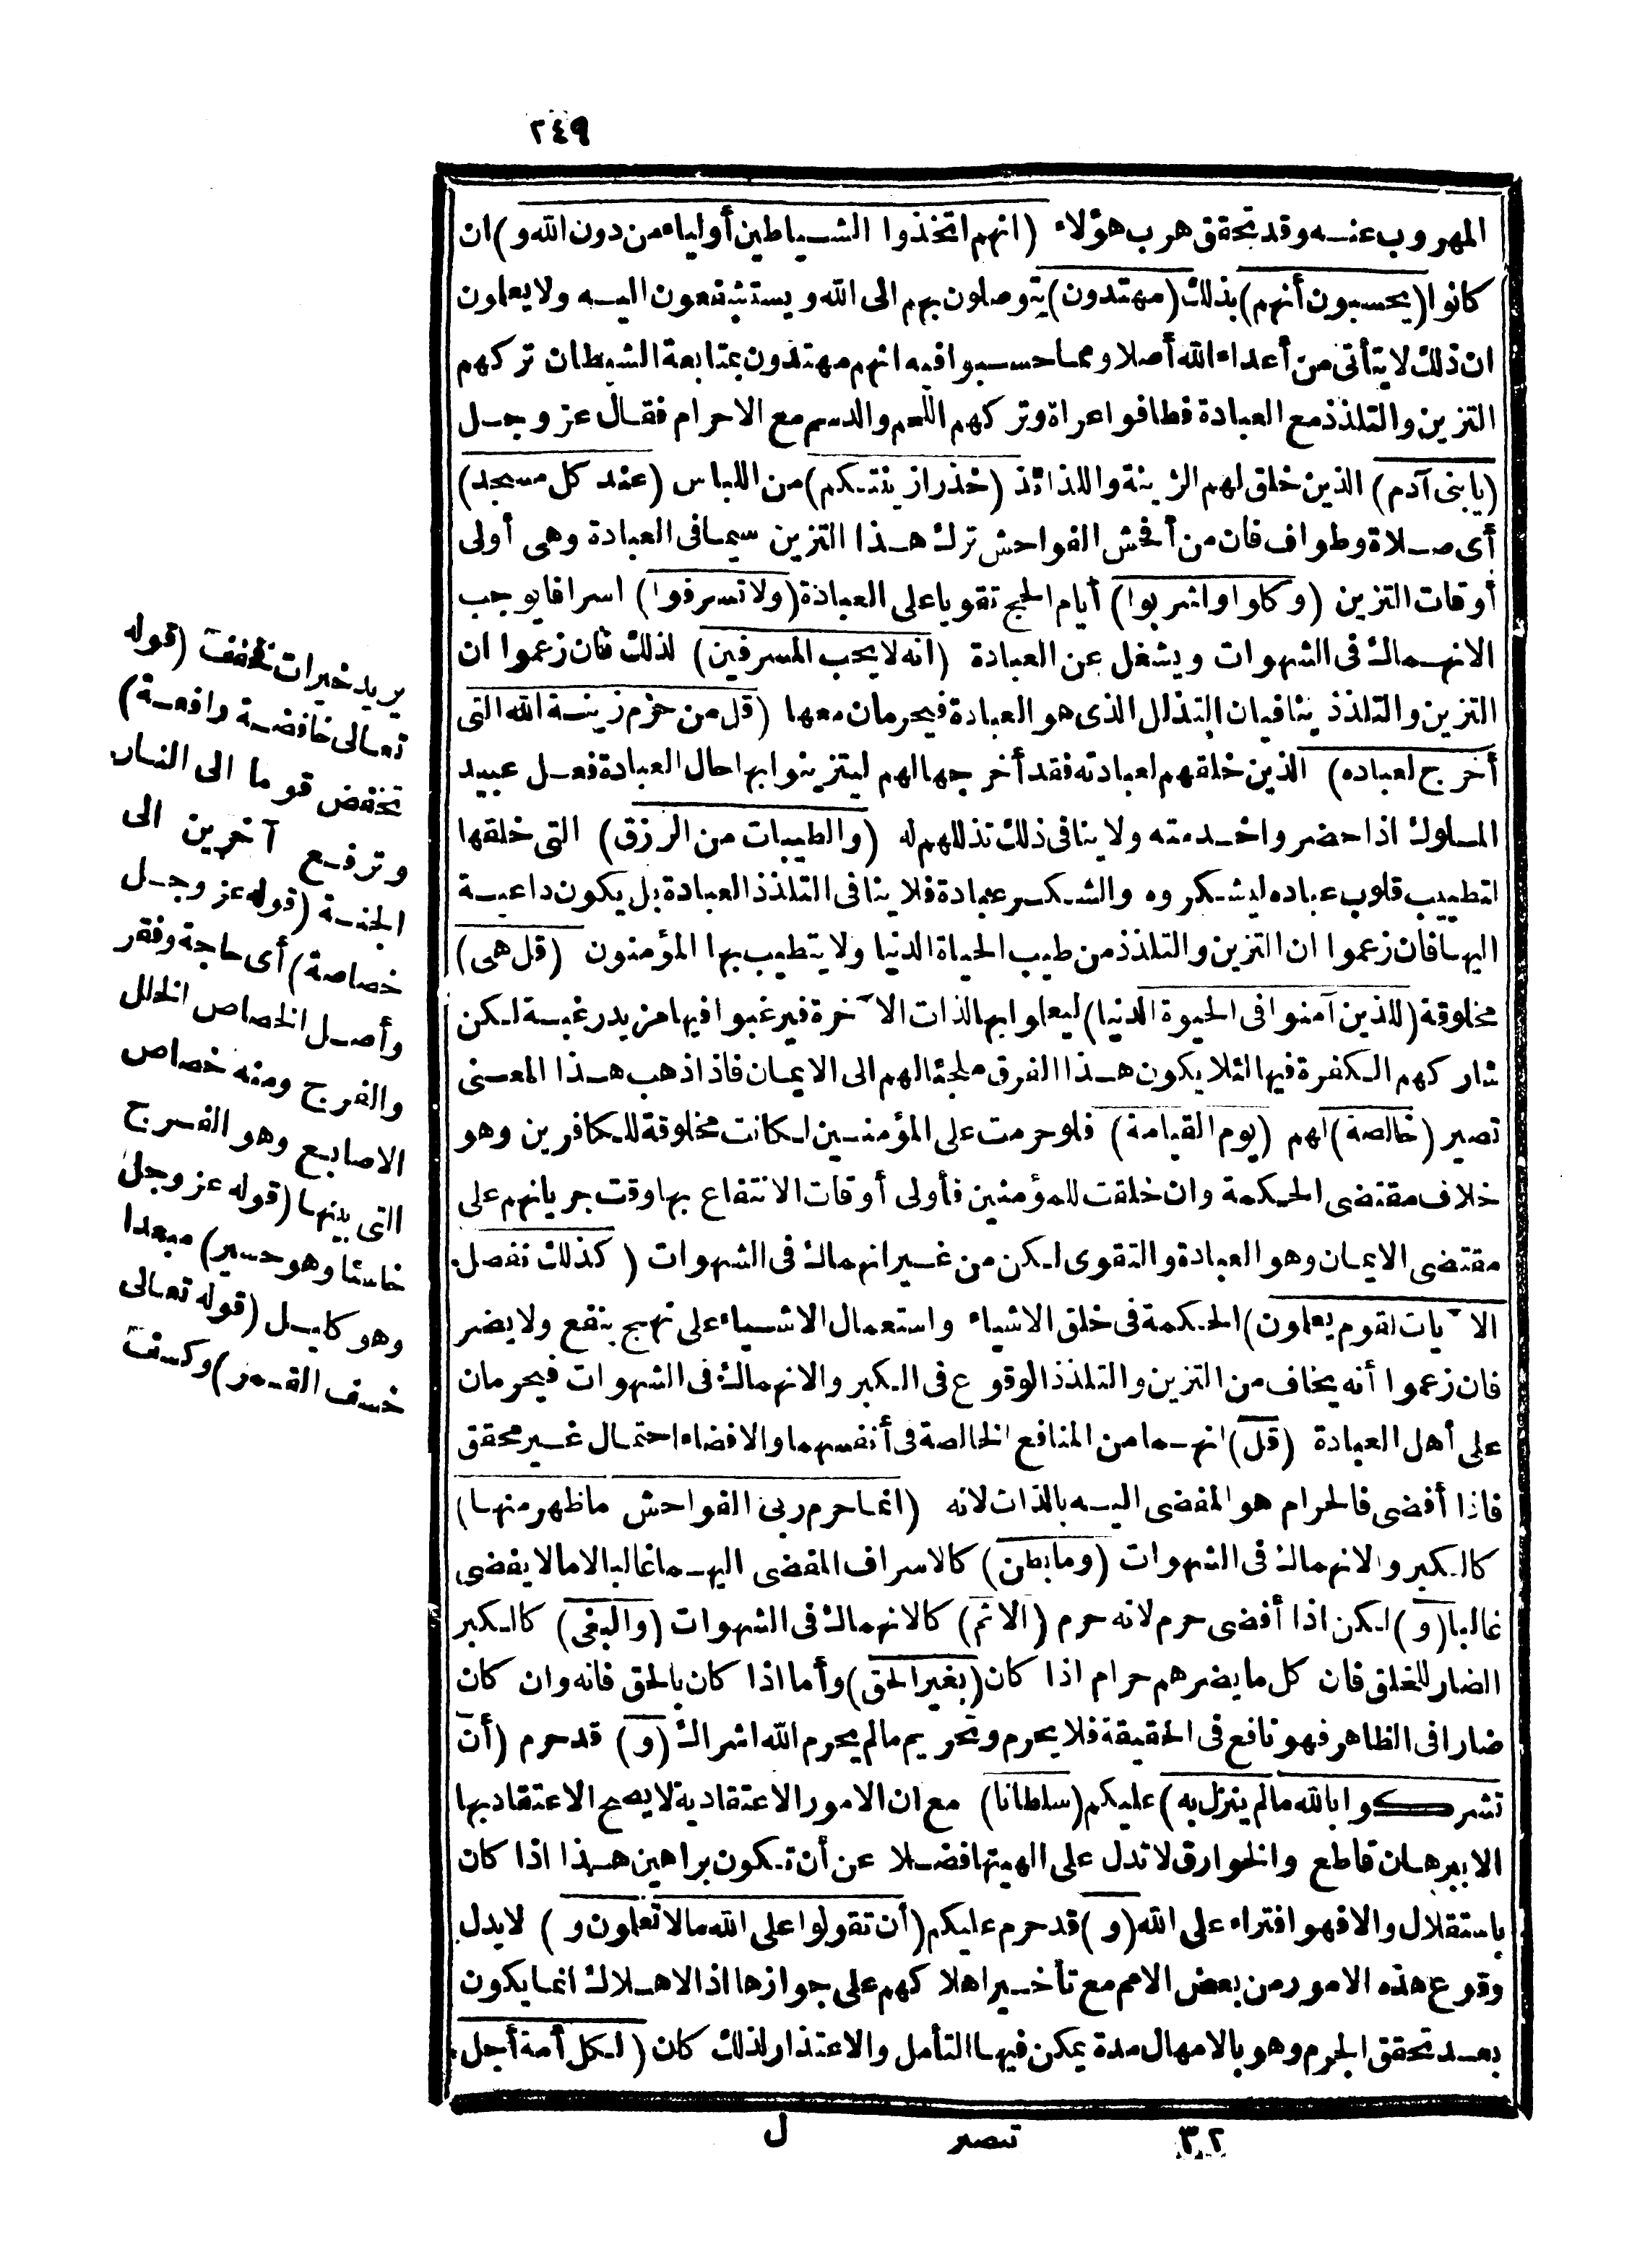 ٢٤٩
المهروب عنه وقد تحقق هرب هؤلاء (انهم اتخذوا الشياطين أولياء من دون الله و) ان
كانوا (يحسبون أنهم) بذلك (مهتدون) يتوصلون بهم الى الله ويستشفعون اليه ولا يعلمون
ان ذلك لا يتأتى من أعداء الله أصلا ومما حسبوا فيه انهم مهتدون بمتابعة الشيطان تركهم
التزين والتلذذ مع العبادة فطافوا عراة وتركهم اللحم والدسم مع الاحرام فقال عز وجل
(يابنى آدم) الذين خلق لهم الزينة واللذائذ (خذوا زينتكم) من اللباس (عند كل مسجد)
أى صلاة وطواف فان من أفحش الفواحش ترك هذا التزين سيما فى العبادة وهى أولى
أوقات التزين (وكلوا واشربوا) أيام الحج تقويا على العبادة (ولا تسرفوا) اسرافا يوجب
الانهماك فى الشهوات ويشغل عن العبادة (انه لا يحب المسرفين) لذلك فان زعموا ان
التزين والتلذذ ينافيان التذلل الذى هو العبادة فيحرمان معها (قل من حرم زينة الله التى
أخرج لعباده) الذين خلقهم لعبادته فقد أخرجها لهم ليتزينوا بها حال العبادة فعل عبيد
الملوك اذا حضروا خدمته ولا ينافى ذلك تذللهم له (والطيبات من الرزق) التى خلقها
لتطييب قلوب عباده ليشكروه والشكر عبادة فلا ينافى التلذذ العبادة بل يكون داعية
اليها فان زعموا ان التزين والتلذذ من طيب الحياة الدنيا ولا يتطيب بها المؤمنون (قل هى)
مخلوقة (للذين آمنوا فى الحيوة الدنيا) ليعلموا بها لذات الآخرة فيرغبوا فيها مزيد رغبة لكن
شاركهم الكفرة فيها لئلا يكون هذا الفرق ملجئا لهم الى الايمان فاذا ذهب هذا المعنى
تصير (خالصة) لهم (يوم القيامة) فلو حرمت على المؤمنين لكانت مخلوقة للكافرين وهو
خلاف مقتضى الحكمة وان خلقت للمؤمنين فأولى أوقات الانتفاع بها وقت جريانهم على
مقتضى الايمان وهو العبادة والتقوى لكن من غير انهماك فى الشهوات (كذلك نفصل
الآيات لقوم يعلمون) الحكمة فى خلق الاشياء واستعمال الاشياء على نهج ينفع ولا يضر
فان زعموا أنه يخاف من التزين والتلذذ الوقوع فى الكبر والانهماك فى الشهوات فيحرمان
على أهل العبادة (قل) انهما من المنافع الخالصة فى أنفسهما والافضاء احتمال غير محقق
فاذا أفضى فالحرام هو المفضى اليه بالذات لانه (انما حرم ربى الفواحش ما ظهر منها)
كالكبر والانهماك فى الشهوات (وما بطن) كالاسراف المفضى اليهما غالبا لا ما لا يفضى
غالبا (و) لكن اذا أفضى حرم لانه حرم (الاثم) كالانهماك فى الشهوات (والبغى) كالكبر
الضار للخلق فان كل ما يضرهم حرام اذا كان (بغير الحق) وأما اذا كان بالحق فانه وان كان
ضارا فى الظاهر فهو نافع فى الحقيقة فلا يحرم وتحريم ما لم يحرم الله اشراك (و) قد حرم (أن
تشركوا بالله ما لم ينزل به) عليكم (سلطانا) مع ان الامور الاعتقادية لا يصح الاعتقاد بها
الا ببرهان قاطع والخوارق لا تدل على الهيتها فضلا عن أن تكون براهين هذا اذا كان
باستقلال والا فهو افتراء على الله (و) قد حرم عليكم (أن تقولوا على الله ما لا تعلمون و) لا يدل
وقوع هذه الامور من بعض الامم مع تأخير اهلاكهم على جوازها اذ الاهلاك انما يكون
بعد تحقق الجرم وهو بالامهال مدة يمكن فيها التأمل والاعتذار لذلك كان (لكل أمة أجل
٣٢ تبصير ل
يريد خيرات فخفف (قوله
تعالى خافضة رافعة)
تخفض قوما الى النار
وترفع آخرين الى
الجنة (قوله عز وجل
خصاصة) أى حاجة وفقر
وأصل الخصاص الخلل
والفرج ومنه خصاص
الاصابع وهو الفرج
التى بينها (قوله عز وجل
خاسئا وهو حسير) مبعدا
وهو كليل (قوله تعالى
خسف القمر) وكسف